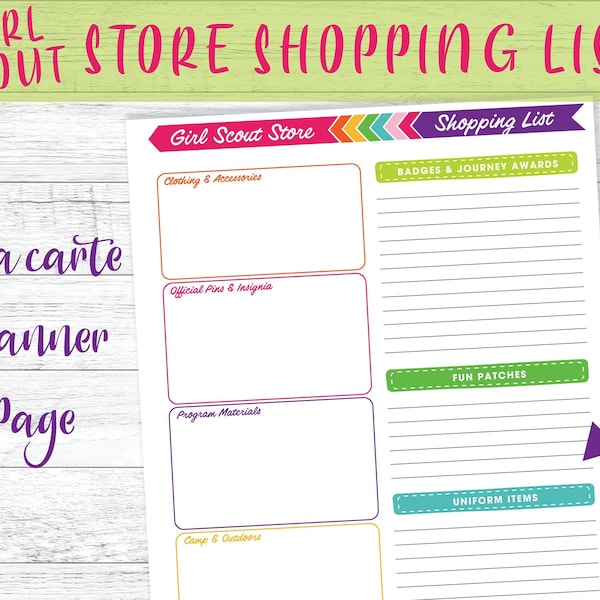 STORE SHOPPING LIS
Girl Scout Store
Shopping List
Clothing & Accessories
Official Pins & Insignia
Program Materials
Camp & Outdoors
BADGES & JOURNEY AWARDS
FUN PATCHES
UNIFORM ITEMS
a carte
anner
Page